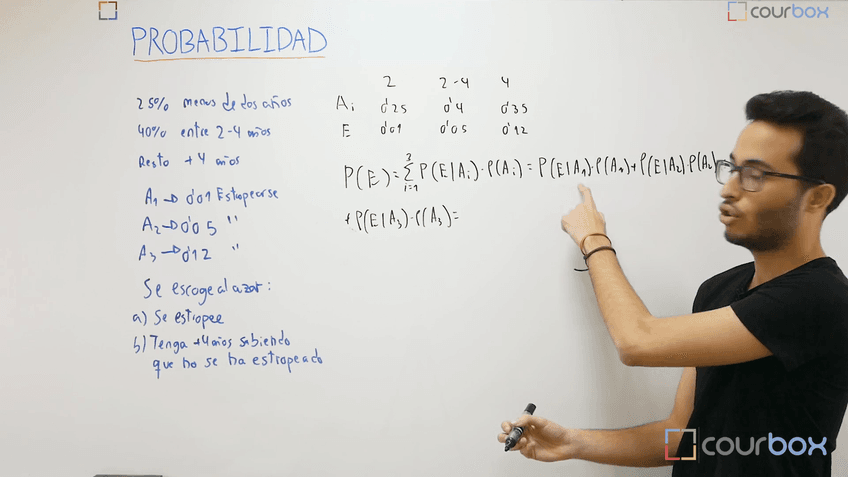 courbox
PROBABILIDAD
25% menos de dos años
40% entre 2-4 años
Resto +4 años
A₁ → 0'01 Estropearse
A₂ → 0'05 "
A₃ → 0'12 "
Se escoge al azar:
a) Se estropee
b) Tenga +4 años sabiendo
que no se ha estropeado
2 2-4 4
Ai 0'25 0'4 0'35
E 0'01 0'05 0'12
P(E) = 3 Σ i=1 P(E|Ai)·P(Ai) = P(E|A₁)·P(A₁)+P(E|A₂)·P(A₂)
+ P(E|A₃)·P(A₃) =
courbox